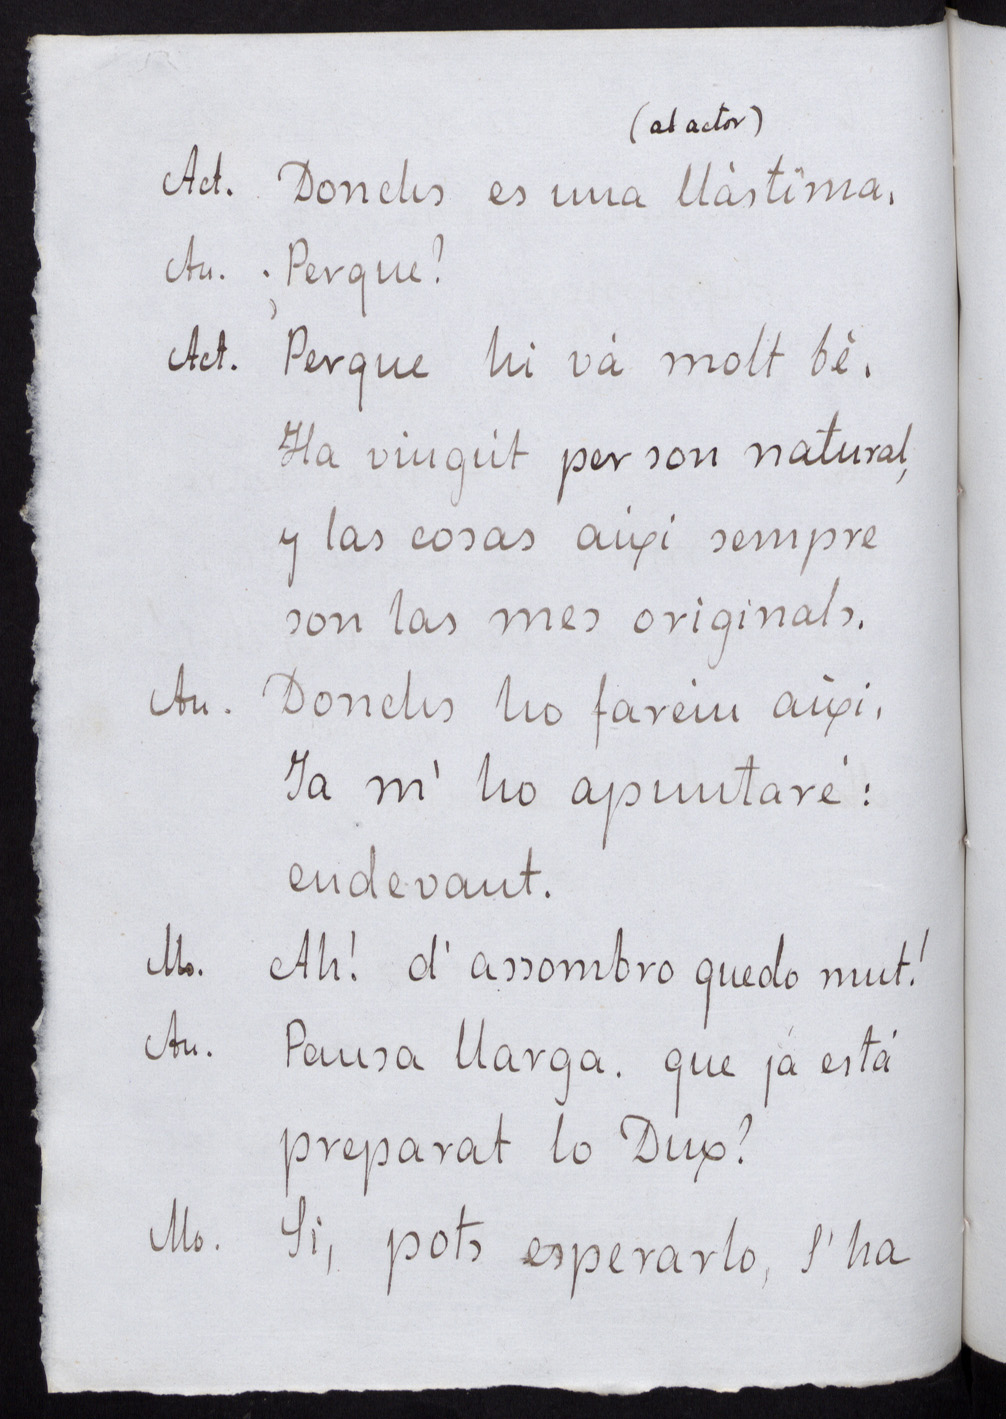 (al actor)
Act. Donchs es una llástima.
Au. ¿Perque?
Act. Perque hi vá molt bé.
Ha vingút per son natural,
y las cosas aixi sempre
son las mes originals.
Au. Donchs ho farém aixi.
Ja m' ho apuntaré:
endevant.
Mo. Ah! d' assombro quedo mut!
Au. Pausa llarga. que já está
preparat lo Dux?
Mo. Si, pots esperarlo, s' ha